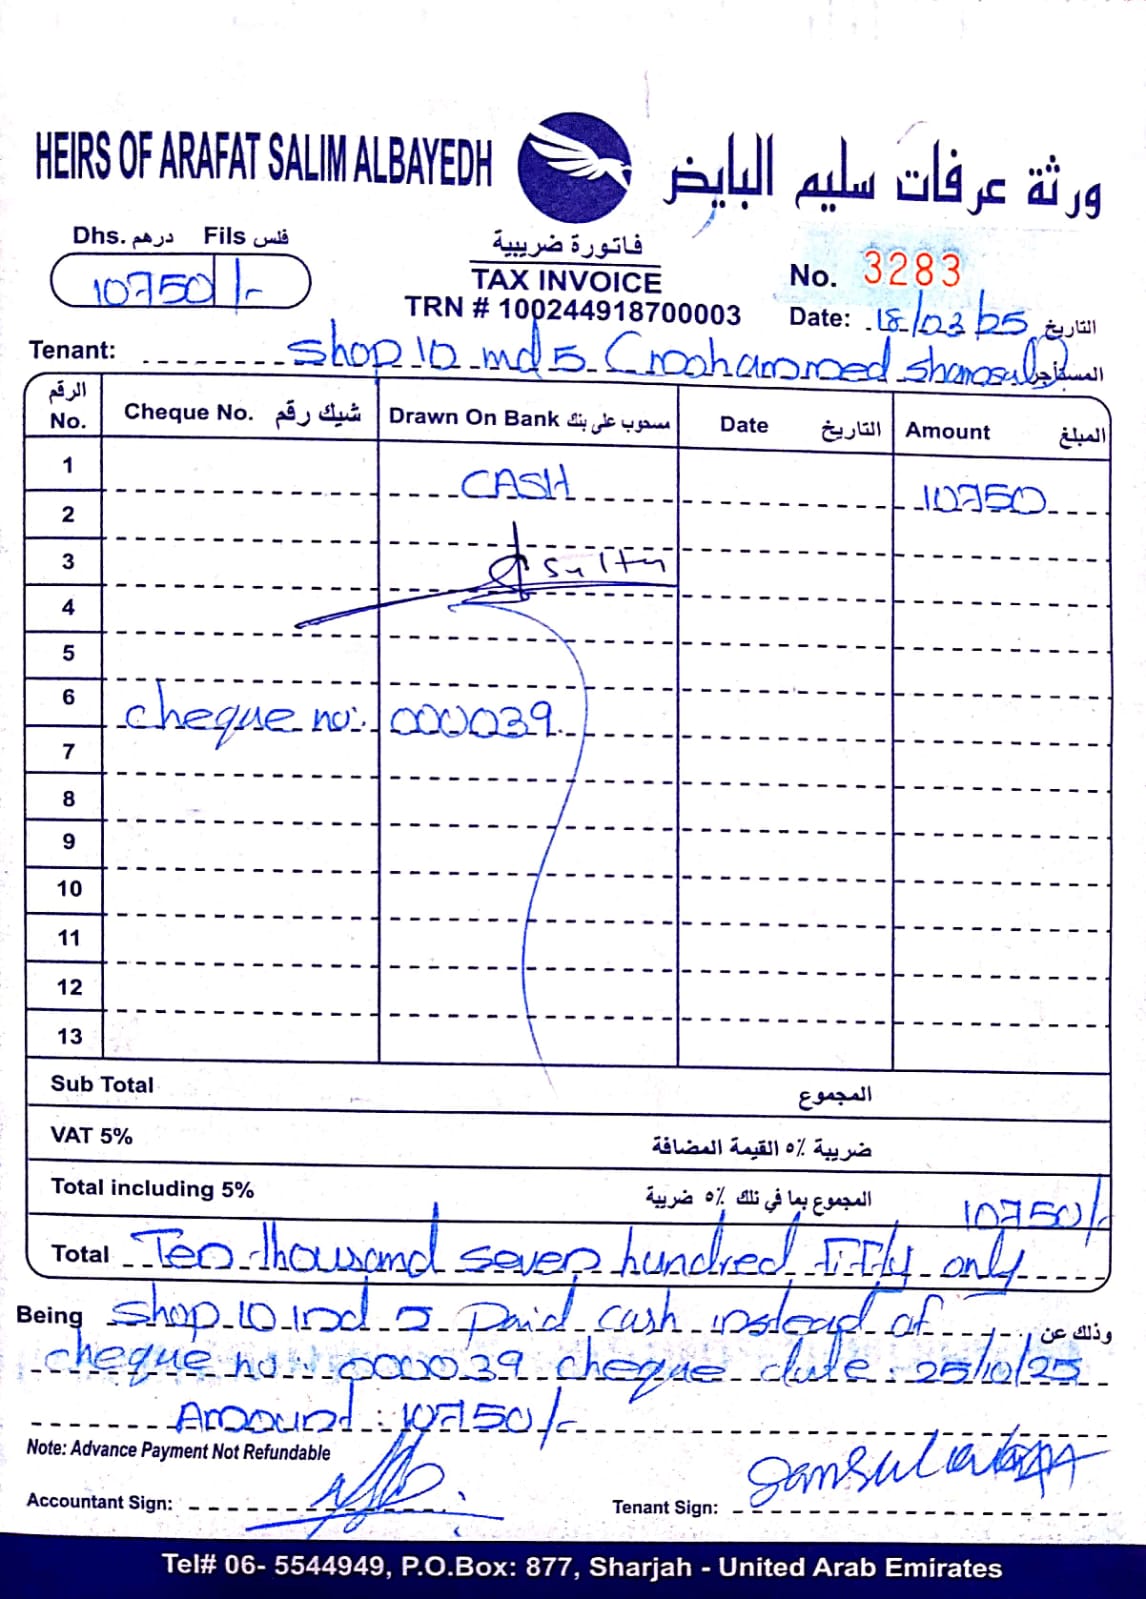 HEIRS OF ARAFAT SALIM ALBAYEDH
ورثة عرفات سليم البايض
Dhs. درهم Fils فلس
10750 /-
فاتورة ضريبية
TAX INVOICE
TRN # 100244918700003
No. 3283
Date: 18/03/25 التاريخ
Tenant: shop 10 ind 5 (mohammed shamsul) المستأجر
الرقم No. Cheque No. شيك رقم Drawn On Bank مسحوب على بنك Date التاريخ Amount المبلغ
1 CASH 10750
2
3
4
5
6 cheque no: 000039
7
8
9
10
11
12
13
Sub Total المجموع
VAT 5% ضريبة ٥٪ القيمة المضافة
Total including 5% المجموع بما في ذلك ٥٪ ضريبة 10750/-
Total Ten thousand seven hundred fifty only
Being shop 10 ind 5 paid cash instead of وذلك عن
cheque no: 000039 cheque date: 25/10/25
Amount: 10750/-
Note: Advance Payment Not Refundable
Accountant Sign: Tenant Sign:
Tel# 06- 5544949, P.O.Box: 877, Sharjah - United Arab Emirates